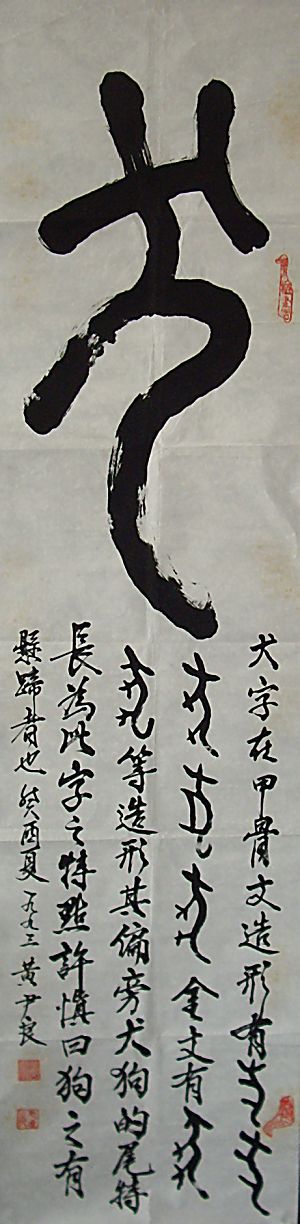 犬
犬字在甲骨文造形有
金文有
等造形其偏旁犬狗的尾特
長為此字之特點許慎曰狗之有
懸蹄者也癸酉夏一九九三黃尹良